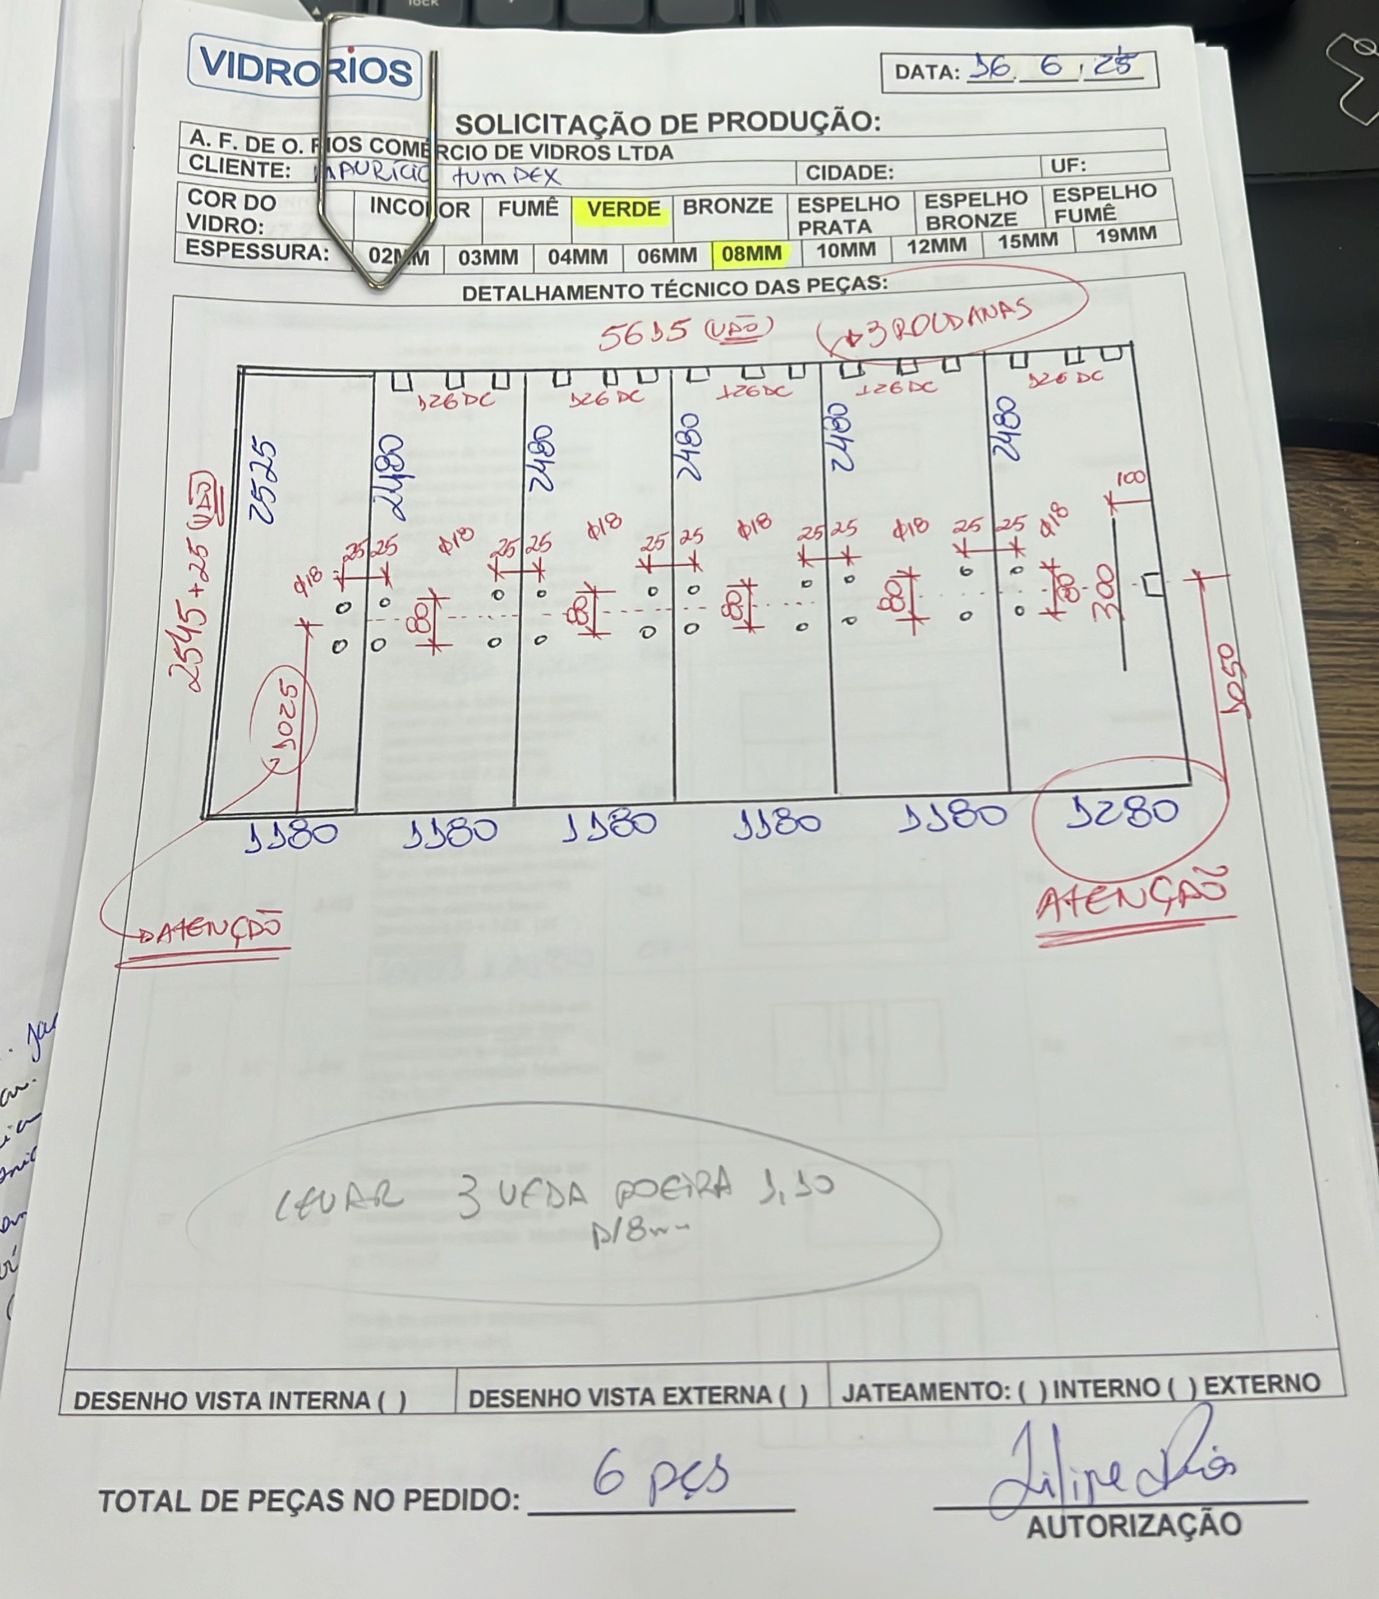 VIDRORIOS
DATA: 16 6 25
SOLICITAÇÃO DE PRODUÇÃO:
A. F. DE O. RIOS COMÉRCIO DE VIDROS LTDA
CLIENTE: MAURÍCIO CIDADE: UF:
COR DO VIDRO: INCOLOR FUMÊ VERDE BRONZE ESPELHO PRATA ESPELHO BRONZE ESPELHO FUMÊ
ESPESSURA: 02MM 03MM 04MM 06MM 08MM 10MM 12MM 15MM 19MM
DETALHAMENTO TÉCNICO DAS PEÇAS:
5615 (VÃO) 3 ROLDANAS
126 DC 126 DC 126 DC 126 DC 126 DC
2525 2480 2480 2480 2480 2480
2545+25 (VÃO)
100
25 25 25 25 25 25 25 25 25 25
φ18 φ18 φ18 φ18 φ18 φ18
80 80 80 80 80 300
1025 1050
1180 1180 1180 1180 1180 1280
ATENÇÃO ATENÇÃO
LEVAR 3 VEDA POEIRA 1,10
P/8mm
DESENHO VISTA INTERNA ( ) DESENHO VISTA EXTERNA ( ) JATEAMENTO: ( ) INTERNO ( ) EXTERNO
TOTAL DE PEÇAS NO PEDIDO: 6 pçs
Filipe Rios
AUTORIZAÇÃO